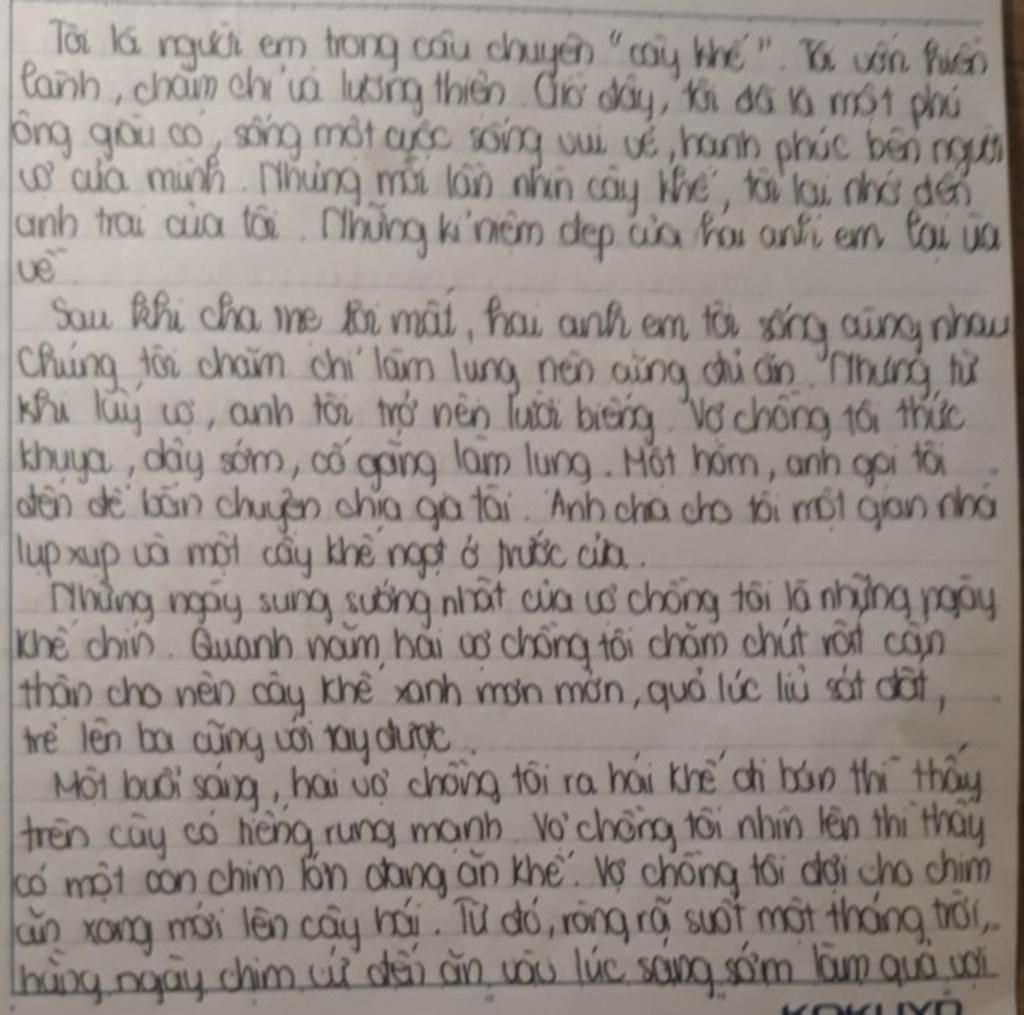 Tôi là người em trong câu chuyện "cây khế". Tôi vốn hiền
lành, chăm chỉ và lương thiện. Giờ đây, tôi đã là một phú
ông giàu có, sống một cuộc sống vui vẻ, hạnh phúc bên người
vợ của mình. Nhưng mỗi lần nhìn cây khế, tôi lại nhớ đến
anh trai của tôi. Những kỉ niệm đẹp của hai anh em lại ùa
về.
Sau khi cha mẹ tôi mất, hai anh em tôi sống cùng nhau
Chúng tôi chăm chỉ làm lụng nên cũng đủ ăn. Nhưng từ
khi lấy vợ, anh tôi trở nên lười biếng. Vợ chồng tôi thức
khuya, dậy sớm, cố gắng làm lụng. Một hôm, anh gọi tôi
đến để bàn chuyện chia gia tài. Anh chia cho tôi một gian nhà
lụp xụp và một cây khế ngọt ở trước cửa.
Những ngày sung sướng nhất của vợ chồng tôi là những ngày
khế chín. Quanh năm, hai vợ chồng tôi chăm chút rất cẩn
thận cho nên cây khế xanh mơn mởn, quả lúc lỉu sát đất,
trẻ lên ba cũng với tay được.
Một buổi sáng, hai vợ chồng tôi ra hái khế đi bán thì thấy
trên cây có tiếng rung mạnh. Vợ chồng tôi nhìn lên thì thấy
có một con chim lớn đang ăn khế. Vợ chồng tôi đợi cho chim
ăn xong mới lên cây hái. Từ đó, ròng rã suốt một tháng trời,
hằng ngày chim cứ đến ăn vào lúc sáng sớm làm quả vơi
KOKUYO